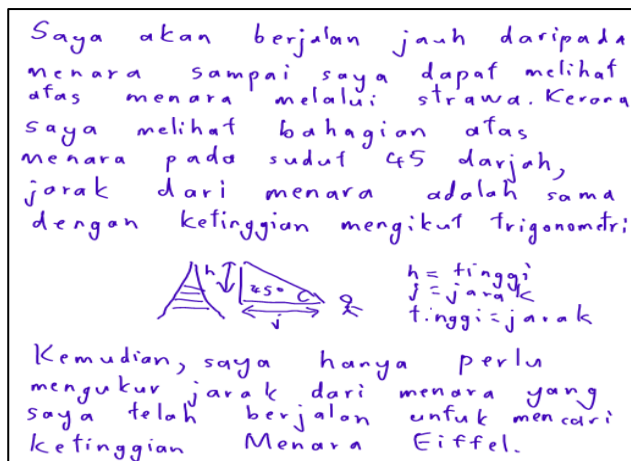 Saya akan berjalan jauh daripada
menara sampai saya dapat melihat
atas menara melalui strawa. Kerana
saya melihat bahagian atas
menara pada sudut 45 darjah,
jarak dari menara adalah sama
dengan ketinggian mengikut trigonometri
h
45°
j
h = tinggi
j = jarak
tinggi = jarak
Kemudian, saya hanya perlu
mengukur jarak dari menara yang
saya telah berjalan untuk mencari
ketinggian Menara Eiffel.